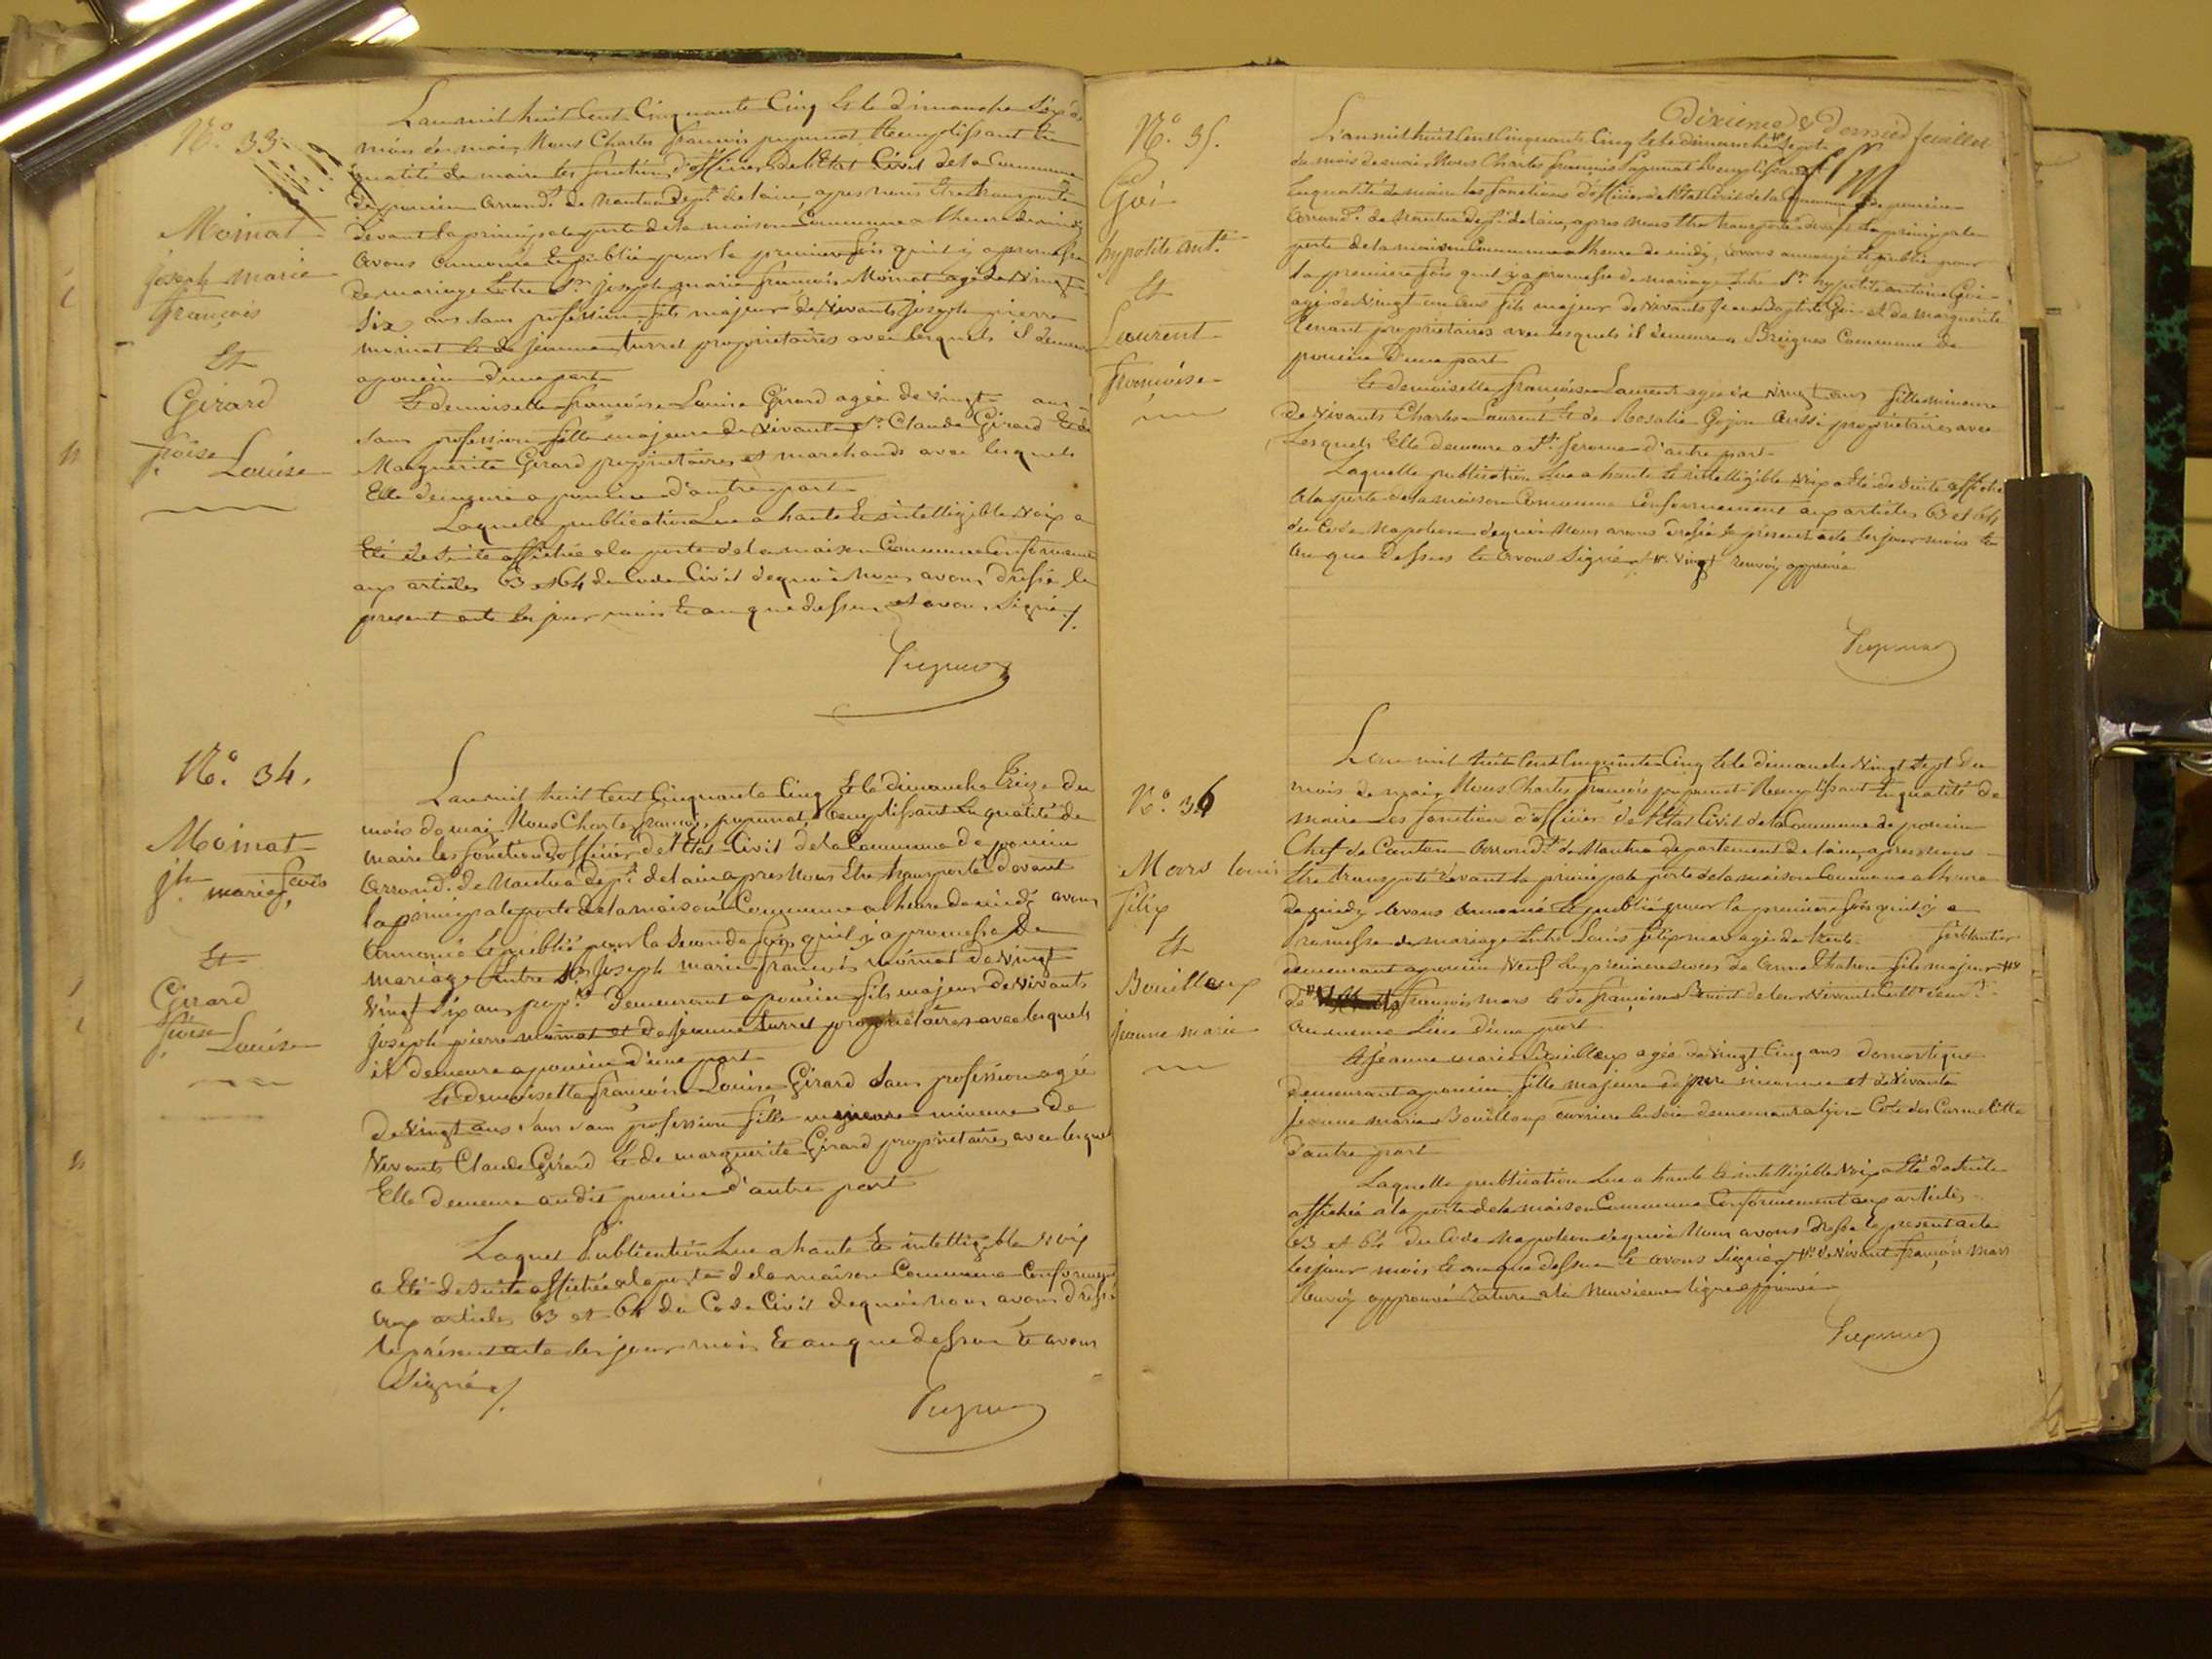 N.° 33.
Moinat
joseph marie
françois
Et
Girard
f.oise Louise
L'an mil huit Cent Cinquante Cinq Et le dimanche Six du
mois de mai, Nous Charles françois pugunat Remplissant En
qualité de maire les fonctions d'officier de l'Etat Civil de la Commune
de poncin arrond.t de Nantua dep.t de l'ain, apres nous Etre transporté
devant la principale porte de la maison Commune a l'heure de midi
avons annoncé Et publié pour la premiere fois qu'il y a promesse
de mariage Entre S.r joseph marie françois Moinat agé de Vingt
Six ans sans profession fils majeur de Vivants joseph pierre
moinat Et de jeanne turrel propriétaires avec lesquels il demeure
a poncin d'une part
Et demoiselle françoise Louise Girard agée de Vingt ans
sans profession fille majeure de Vivants S.r Claude Girard Et de
Marguerite Girard propriétaires et marchands avec lesquels
Elle demeure a poncin d'autre part
Laquelle publication Lue a haute Et intelligible Voix a
Eté de suite affichée a la porte de la maison Commune Conformement
aux articles 63 et 64 du Code Civil de quoi Nous avons dréssé le
present acte les jour mois Et an que dessus et avons Signé /.
N.° 34.
Moinat
j.h marie f.çois
Et
Girard
f.oise Louise
L'an mil huit Cent Cinquante Cinq Et le dimanche Treize du
mois de mai Nous Charles françois pugunat, Remplissant En qualité de
maire les fonctions d'officier de l'Etat Civil de la Commune de poncin
arrond.t de Nantua dep.t de l'ain apres Nous Etre transporté devant
la principale porte de la maison Commune a l'heure de midi avons
annoncé Et publié pour la Seconde fois, qu'il y a promesse De
mariage Entre S.r joseph marie françois moinat de Vingt
Vingt Six ans prop.re demeurant a poncin fils majeur de Vivants
joseph pierre moinat et de jeanne turrel propriétaires avec lesquels
il demeure a poncin d'une part
Et demoiselle françoise Louise Girard Sans profession agée
de Vingt ans sans profession fille mineure de
Vivants Claude Girard Et de marguerite Girard propriétaires avec lesquels
Elle demeure au dit poncin d'autre part
Laquel Publication Lue a haute Et intelligible Voix
a Eté de suite affichée a la porte de la maison Commune Conformement
aux articles 63 et 64 du Code Civil de quoi nous avons dréssé
le présent acte les jour mois Et an que dessus Et avons
Signé /.
N.° 35.
Goi
hypolite ant.e
Et
Laurent
françoise
Dixieme & Dernier feuillet
L'an mil huit Cent Cinquante Cinq Et le dimanche
du mois de mai, Nous Charles françois Pugunat Remplissant
En qualité de maire les fonctions d'officier de l'Etat Civil de la Commune de poncin
arrond.t de Nantua dep.t de l'ain, apres nous Etre transporté devant la principale
porte de la maison Commune a l'heure de midi, avons annoncé Et publié pour
la premiere fois qu'il y a promesse de mariage Entre S.r hypolite antoine Goi
agé de Vingt un ans fils majeur de Vivants Jean Baptiste Goi et de Marguerite
propriétaires avec lesquels il demeure a Breignes Commune de
poncin d'une part
Et demoiselle françoise Laurent agée de Vingt ans fille mineure
de Vivants Charles Laurent Et de Rosalie Gojon aussi propriétaires avec
Lesquels Elle demeure a S.t Jerome d'autre part
Laquelle publication Lue a haute Et intelligible Voix a Eté de suite affichée
a la porte de la maison Commune Conformement aux articles 63 et 64
du Code Napoleon de quoi Nous avons dréssé le présent acte les jour mois Et
an que dessus Et avons Signé Vingt Renvoi approuvé
N.° 36
Mars louis
félix
Et
Bouilloux
jeanne marie
L'an mil huit Cent Cinquante Cinq Et le dimanche Vingt Sept du
mois de mai, Nous Charles françois pugunat Remplissant En qualité de
maire Les fonction d'officier de l'Etat Civil de la Commune de poncin
Chef de Canton arrond.t de Nantua departement de l'ain, apres nous
Etre transporté devant la principale porte de la maison Commune a l'heure
de midi, avons annoncé Et publié pour la premiere fois qu'il y a
Promesse de mariage Entre Louis félix mars agé de trente ferblantier
demeurant a poncin Veuf En premieres noces de fils majeur
de françois mars Et de françoise Benoit de leur Vivants
au meme Lieu d'une part
Et jeanne marie Bouilloux agée de Vingt Cinq ans domestique
demeurant a poncin fille majeure de père inconnu et de Vivante
jeanne marie Bouilloux ouvriere En Soie demeurant a lyon Cote des Carmelittes
d'autre part
Laquelle publication Lue a haute Et intelligible Voix a Eté de suite
affichée a la porte de la maison Commune Conformement aux articles
63 et 64 du Code Napoleon de quoi Nous avons dréssé le present acte
les jour mois Et an que dessus Et avons Signé de Vivant françois Mars
Renvoi approuvé Rature a la Neuvieme ligne approuvé